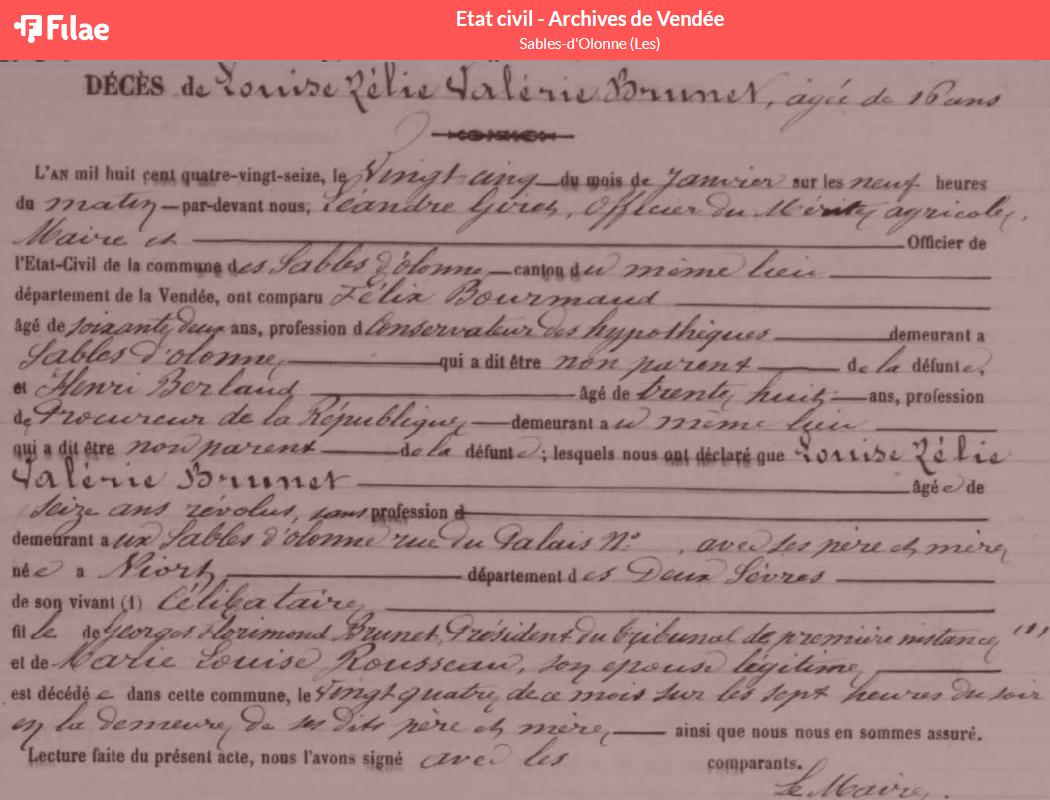 Filae
Etat civil - Archives de Vendée
Sables-d'Olonne (Les)
DÉCÈS de Louise Zélie Valérie Brunet, agée de 16 ans
L'AN mil huit cent quatre-vingt-seize, le Vingt cinq du mois de Janvier sur les neuf heures
du matin par-devant nous, Léandre Officier du Mérite agricole,
Maire et Officier de
l'Etat-Civil de la commune des Sables d'olonne canton du même lieu
département de la Vendée, ont comparu Félix Bourmaud
âgé de soixante deux ans, profession d Conservateur des hypothèques demeurant a
Sables d'olonne qui a dit être non parent de la défunte,
et Henri Berlaud âgé de trente huit ans, profession
de Procureur de la République demeurant au même lieu
qui a dit être non parent de la défunte ; lesquels nous ont déclaré que Louise Zélie
Valérie Brunet âgée de
seize ans révolus, sans profession d
demeurant aux Sables d'olonne rue du Palais N° , avec ses père et mère
née a Niort département des Deux Sèvres
de son vivant (1) Célibataire
fille de Georges Florimond Brunet, Président du tribunal de première instance
et de Marie Louise Rousseau, son epouse légitime
est décédée dans cette commune, le Vingt quatre de ce mois sur les sept heures du soir
en la demeure de ses dits père et mère ainsi que nous nous en sommes assuré.
Lecture faite du présent acte, nous l'avons signé avec les comparants.
Le Maire,